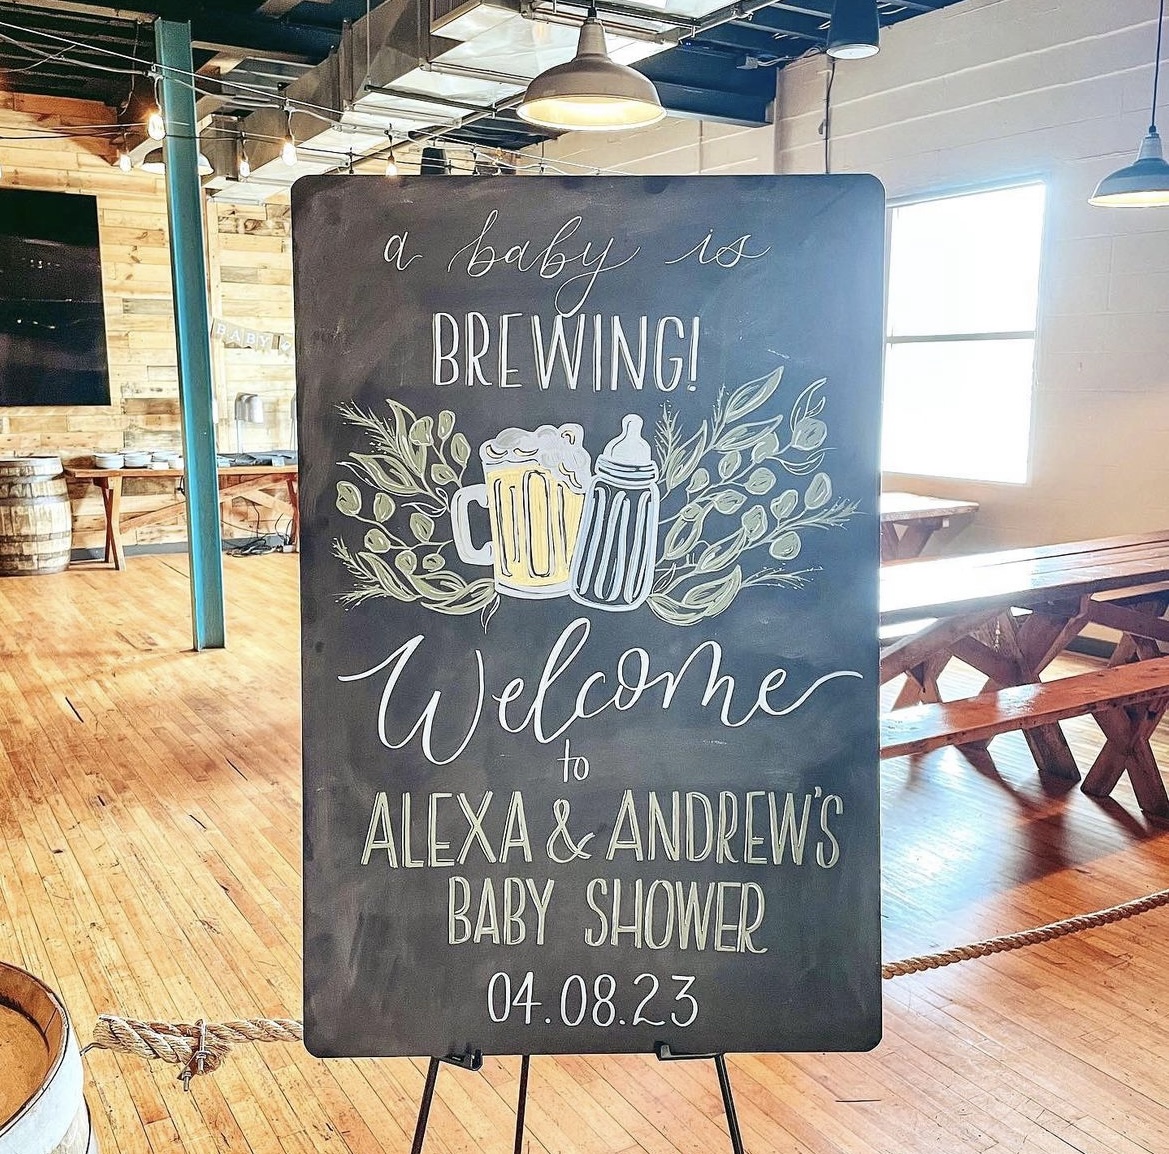 a baby is
BREWING!
Welcome
to
ALEXA & ANDREW'S
BABY SHOWER
04.08.23
BABY